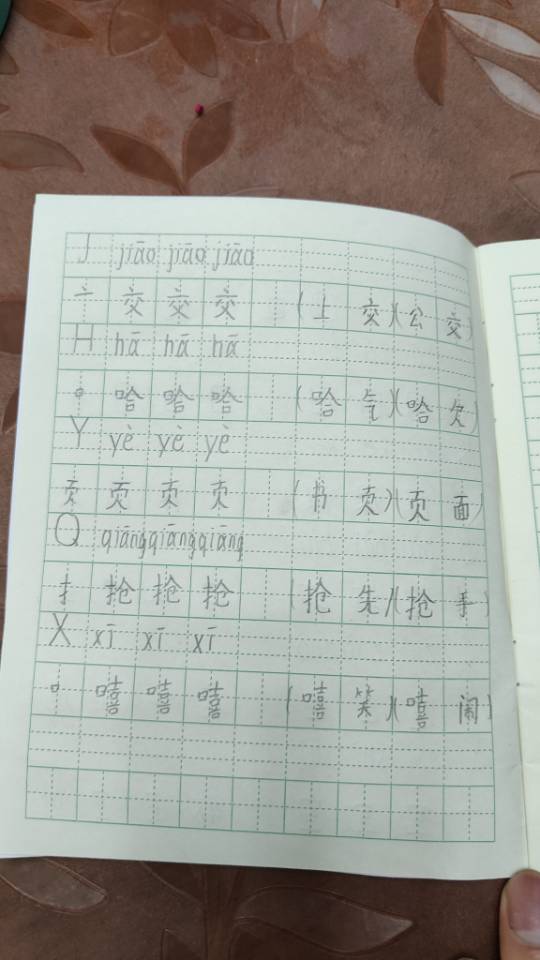 J jiāo jiāo jiāo
亠 交 交 交 (上 交)(公 交)
H hā hā hā
口 哈 哈 哈 (哈 气)(哈 欠)
Y yè yè yè
页 页 页 页 (书 页)(页 面)
Q qiāng qiāng qiāng
扌 抢 抢 抢 (抢 先)(抢 手)
X xī xī xī
口 嘻 嘻 嘻 (嘻 笑)(嘻 闹)